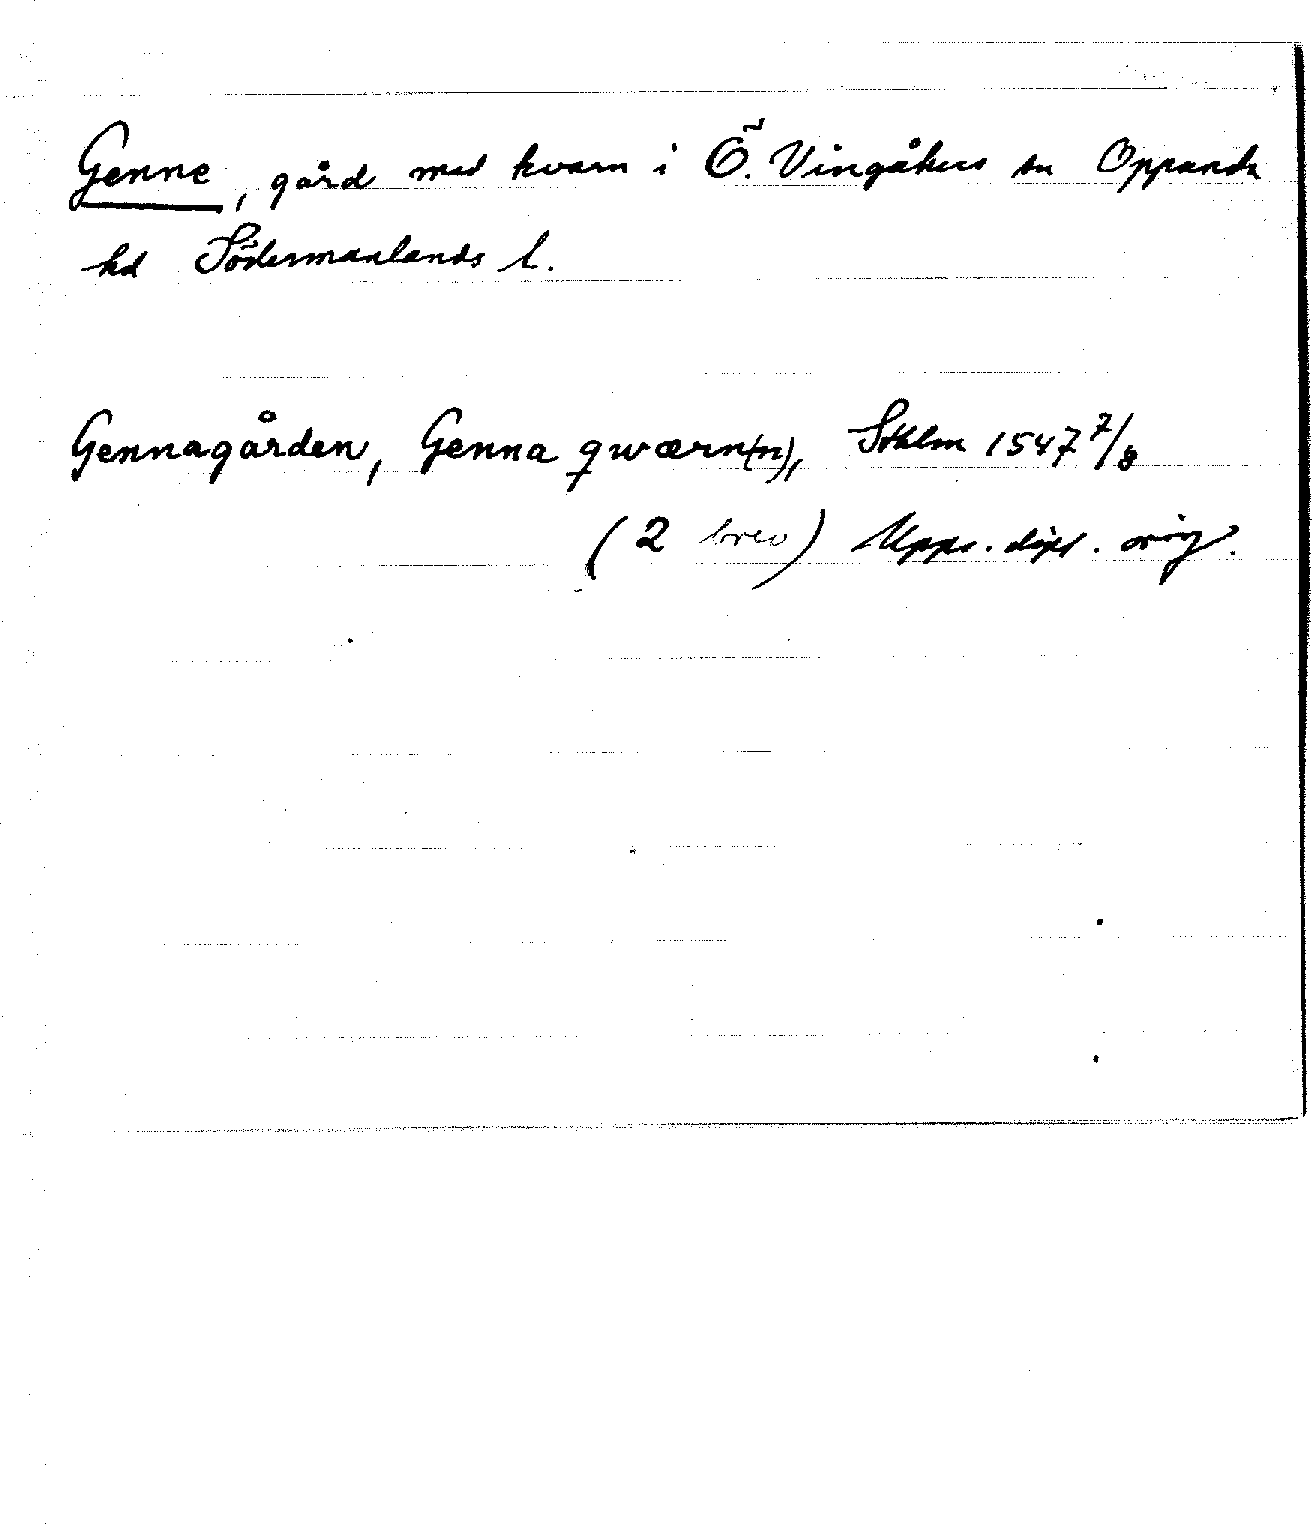 Genne, gård med kvarn i Ö. Vingåkers sn Oppunda
hd Södermanlands l.
Gennagården, Genna qwærn(n), Sthlm 1547 7/8
(2 brev) Upps. dipl. orig.